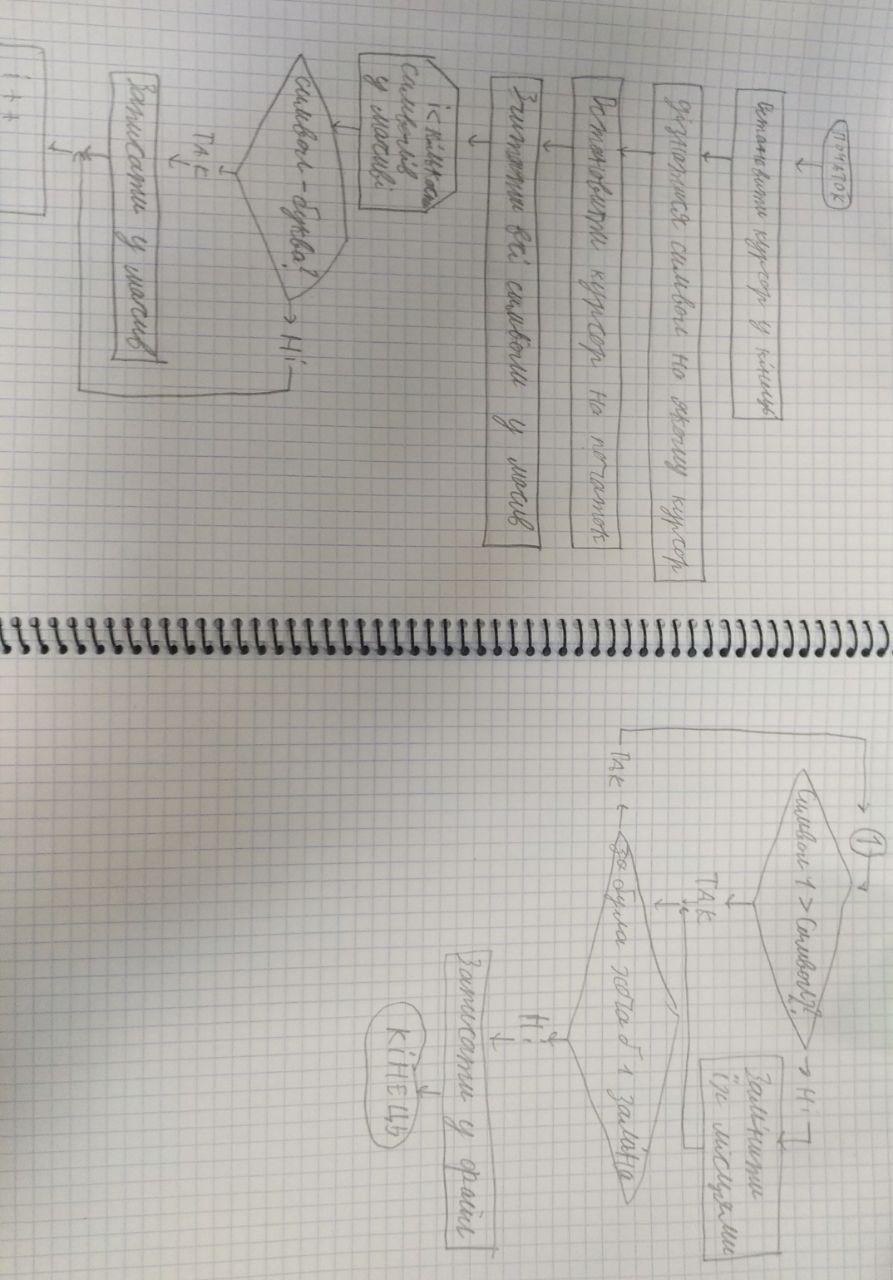 початок
Встановити курсор у кінець
дізнатися символ на якому курсор
Встановити курсор на початок
Зчитати всі символи у масив
і<кількость
символів
у масиві
символ-буква?
Ні
ТАК
Записати у масив
i++
1
Символ 1 > Символ 2?
Ні
ТАК
Замінити
їх місцями
За була хоча б 1 заміна
ТАК
Ні
Записати у файл
КІНЕЦЬ